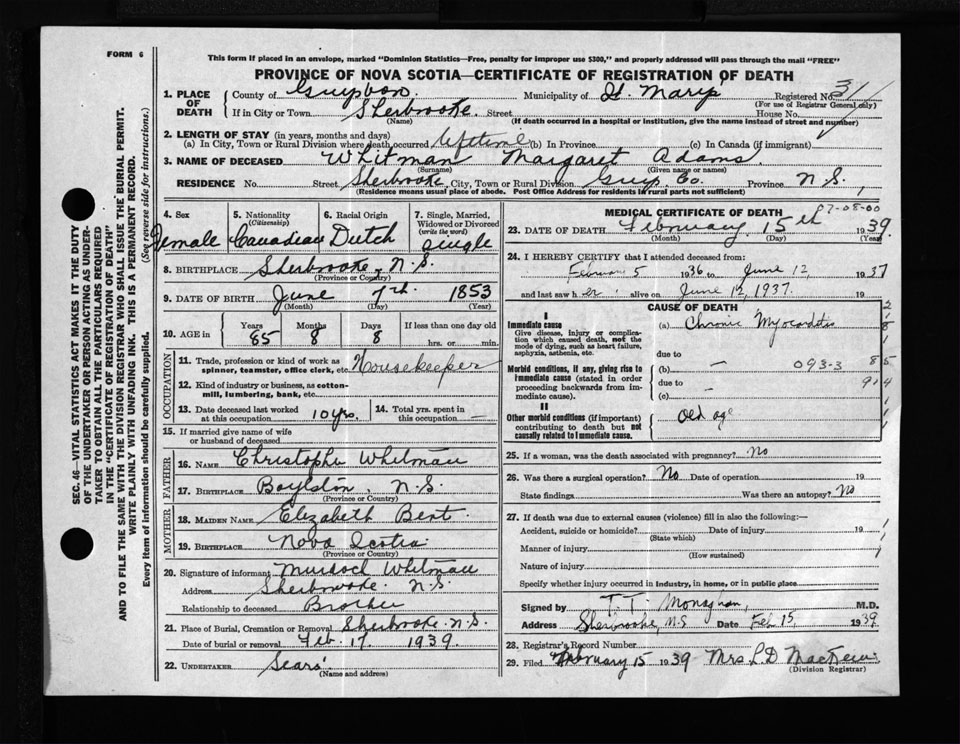 FORM 6
This form if placed in an envelope, marked "Dominion Statistics—Free, penalty for improper use $300," and properly addressed will pass through the mail "FREE"
PROVINCE OF NOVA SCOTIA—CERTIFICATE OF REGISTRATION OF DEATH
1. PLACE OF DEATH
County of Guysboro Municipality of St. Marys Registered No. 31
(For use of Registrar General only)
If in City or Town Sherbrooke Street House No.
(Name) (If death occurred in a hospital or institution, give the name instead of street and number)
2. LENGTH OF STAY (in years, months and days)
(a) In City, Town or Rural Division where death occurred lifetime (b) In Province (c) In Canada (if immigrant)
3. NAME OF DECEASED Whitman Margaret Adams
(Surname) (Given name or names)
RESIDENCE No. Street Sherbrooke City, Town or Rural Division Guys. Co. Province N.S.
(Residence means usual place of abode. Post Office Address for residents in rural parts not sufficient)
4. Sex
Female
5. Nationality
(Citizenship)
Canadian
6. Racial Origin
Dutch
7. Single, Married,
Widowed or Divorced
(write the word)
single
8. BIRTHPLACE Sherbrooke, N.S.
(Province or Country)
9. DATE OF BIRTH June 7th 1853
(Month) (Day) (Year)
10. AGE in
Years Months Days If less than one day old
85 8 8 hrs. or min.
OCCUPATION
11. Trade, profession or kind of work as
spinner, teamster, office clerk, etc. Housekeeper
12. Kind of industry or business, as cotton-
mill, lumbering, bank, etc.
13. Date deceased last worked
at this occupation 10 yrs.
14. Total yrs. spent in
this occupation —
15. If married give name of wife
or husband of deceased
FATHER
16. NAME Christopher Whitman
17. BIRTHPLACE Boylston, N.S.
(Province or Country)
MOTHER
18. MAIDEN NAME Elizabeth Bent
19. BIRTHPLACE Nova Scotia
(Province or Country)
20. Signature of informant Murdoch Whitman
Address Sherbrooke N.S.
Relationship to deceased Brother
21. Place of Burial, Cremation or Removal Sherbrooke N.S.
Date of burial or removal Feb. 17 1939
22. UNDERTAKER Sears
(Name and address)
MEDICAL CERTIFICATE OF DEATH
23. DATE OF DEATH February 15th 1939
(Month) (Day) (Year)
24. I HEREBY CERTIFY that I attended deceased from:
February 5 1936 to June 12, 1937
and last saw her alive on June 12, 1937. 19
CAUSE OF DEATH
I
Immediate cause
Give disease, injury or complica-
tion which caused death, not the
mode of dying, such as heart failure,
asphyxia, asthenia, etc.
(a) Chronic Myocarditis
due to
Morbid conditions, if any, giving rise to
immediate cause (stated in order
proceeding backwards from im-
mediate cause).
(b) — 093-3
due to —
(c)
II
Other morbid conditions (if important)
contributing to death but not
causally related to immediate cause.
Old age
25. If a woman, was the death associated with pregnancy? No
26. Was there a surgical operation? No Date of operation 19
State findings Was there an autopsy? No
27. If death was due to external causes (violence) fill in also the following:—
Accident, suicide or homicide? Date of injury 19
(State which)
Manner of injury
(How sustained)
Nature of injury
Specify whether injury occurred in industry, in home, or in public place
Signed by T. T. Monaghan, M.D.
Address Sherbrooke, N.S. Date Feb 15, 1939
28. Registrar's Record Number
29. Filed February 15 1939 Mrs. L D
(Division Registrar)
SEC. 46—VITAL STATISTICS ACT MAKES IT THE DUTY
OF THE UNDERTAKER OR PERSON ACTING AS UNDER-
TAKER TO OBTAIN ALL THE PARTICULARS REQUIRED
IN THE "CERTIFICATE OF REGISTRATION OF DEATH"
AND TO FILE THE SAME WITH THE DIVISION REGISTRAR WHO SHALL ISSUE THE BURIAL PERMIT.
WRITE PLAINLY WITH UNFADING INK. THIS IS A PERMANENT RECORD.
Every item of information should be carefully supplied. (See reverse side for instructions.)